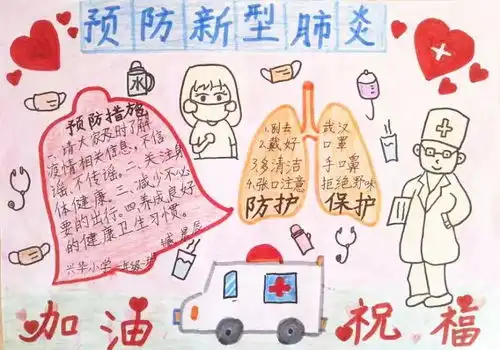 预防新型肺炎
水
预防措施
一.请大家及时了解
疫情相关信息,不信
谣,不传谣。二.关注身
体健康。三.减少不必
要的出行。四.养成良好
的健康卫生习惯。
兴华小学
1.别去 武汉
2.戴好 口罩
3.多清洁 手口罩
4.张口注意 拒绝野味
防护 保护
加油 祝福